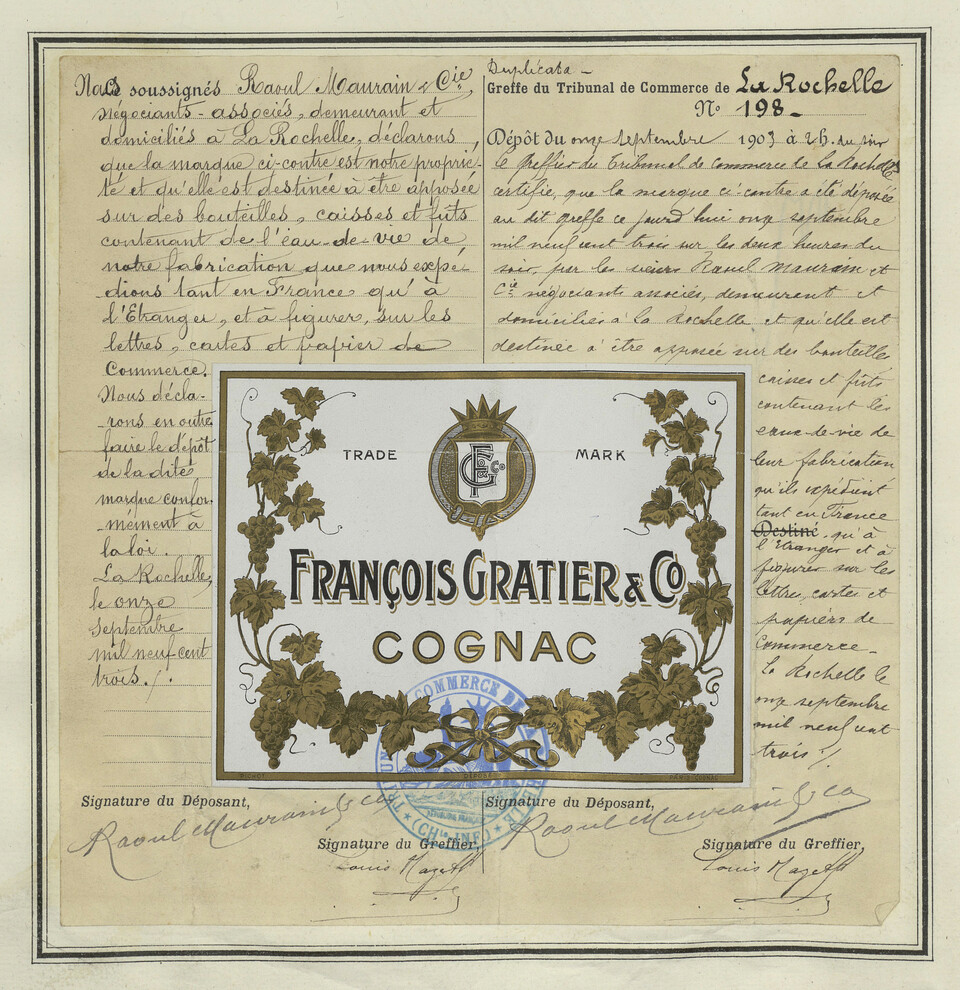 Nous soussignés Raoul Maurain & Cie,
négociants-associés, demeurant et
domiciliés à La Rochelle, déclarons
que la marque ci-contre est notre proprié-
té et qu'elle est destinée à être apposée
sur des bouteilles, caisses et fûts
contenant de l'eau-de-vie de
notre fabrication que nous expé-
dions tant en France qu'à
l'Etranger, et à figurer, sur les
lettres, cartes et papier de
Commerce.
Nous décla-
rons en outre
faire le dépôt
de la dite
marque confor-
mément à
la loi.
La Rochelle,
le onze
Septembre
mil neuf cent
trois./.
Signature du Déposant,
Raoul Maurain & co
Signature du Greffier,
Louis
Duplicata -
Greffe du Tribunal de Commerce de La Rochelle
N° 198-
Dépôt du onze Septembre 1903 à 2 h. du soir
le greffier du Tribunal de Commerce de La Rochelle
certifie, que la marque ci-contre a été déposée
au dit greffe ce jourd'hui onze septembre
mil neuf cent trois sur les deux heures du
soir, par les sieurs Raoul Maurain et
Cie négociants associés, demeurant et
domiciliés à la Rochelle et qu'elle est
destinée à être apposée sur des bouteilles
caisses et fûts
contenant les
eaux-de-vie de
leur fabrication
qu'ils expédient
tant en France
Destiné, qu'à
l'Etranger et à
figurer sur les
lettres, cartes et
papiers de
Commerce-
La Rochelle le
onze septembre
mil neuf cent
trois./.
Signature du Déposant,
Raoul Maurain & co
Signature du Greffier,
Louis
TRADE MARK
FG & Co
FRANÇOIS GRATIER & CO
COGNAC
DÉPOSÉ
COMMERCE DE
RÉPUBLIQUE FRANÇAISE
(CH.te INF.)